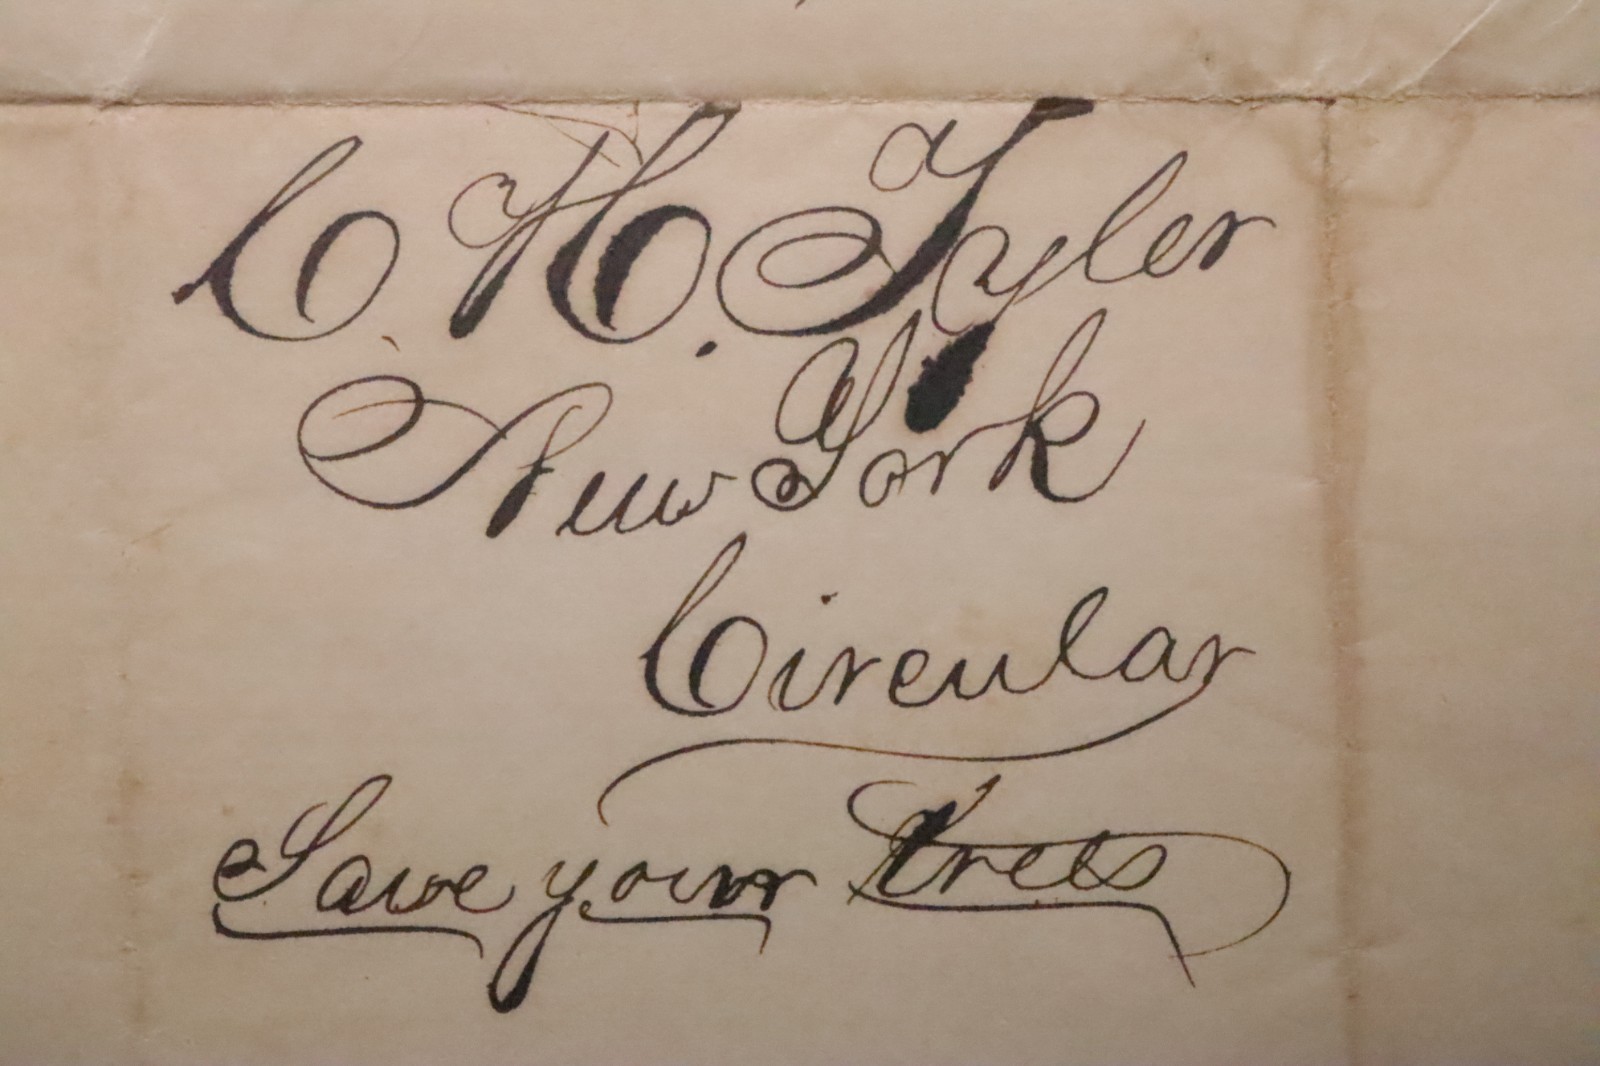 C. H. Tyler
New York
Circular
Save your trees